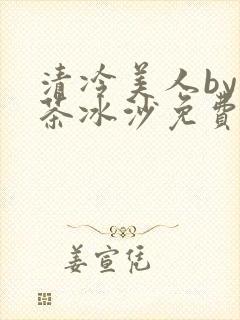 清冷美人by
茶冰沙免費
姜宣凭